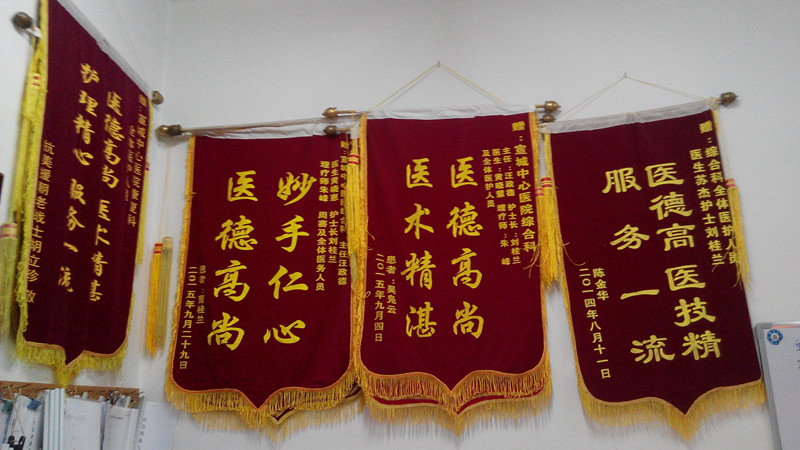 赠：宣城中心医院康复科
全体医护人员
医德高尚 医术精湛
护理精心 服务一流
抗美援朝老战士胡立珍 敬
赠：宣城中心医院综合科 主任汪政德
医生黄晓慧 护士长刘桂兰
理疗师朱峰 周赛及全体医务人员
妙手仁心
医德高尚
患者：曹桂兰
二〇一五年九月二十九日
赠：宣城中心医院综合科
主任：汪政德 护士长：刘桂兰
医生：黄晓慧 理疗师：朱峰
及全体医护人员
医德高尚
医术精湛
患者：吴免云
二〇一五年九月四日
赠：综合科全体医护人员
医生苏杰护士刘桂兰
医德高 医技精
服务一流
陈金华
二〇一四年八月十一日